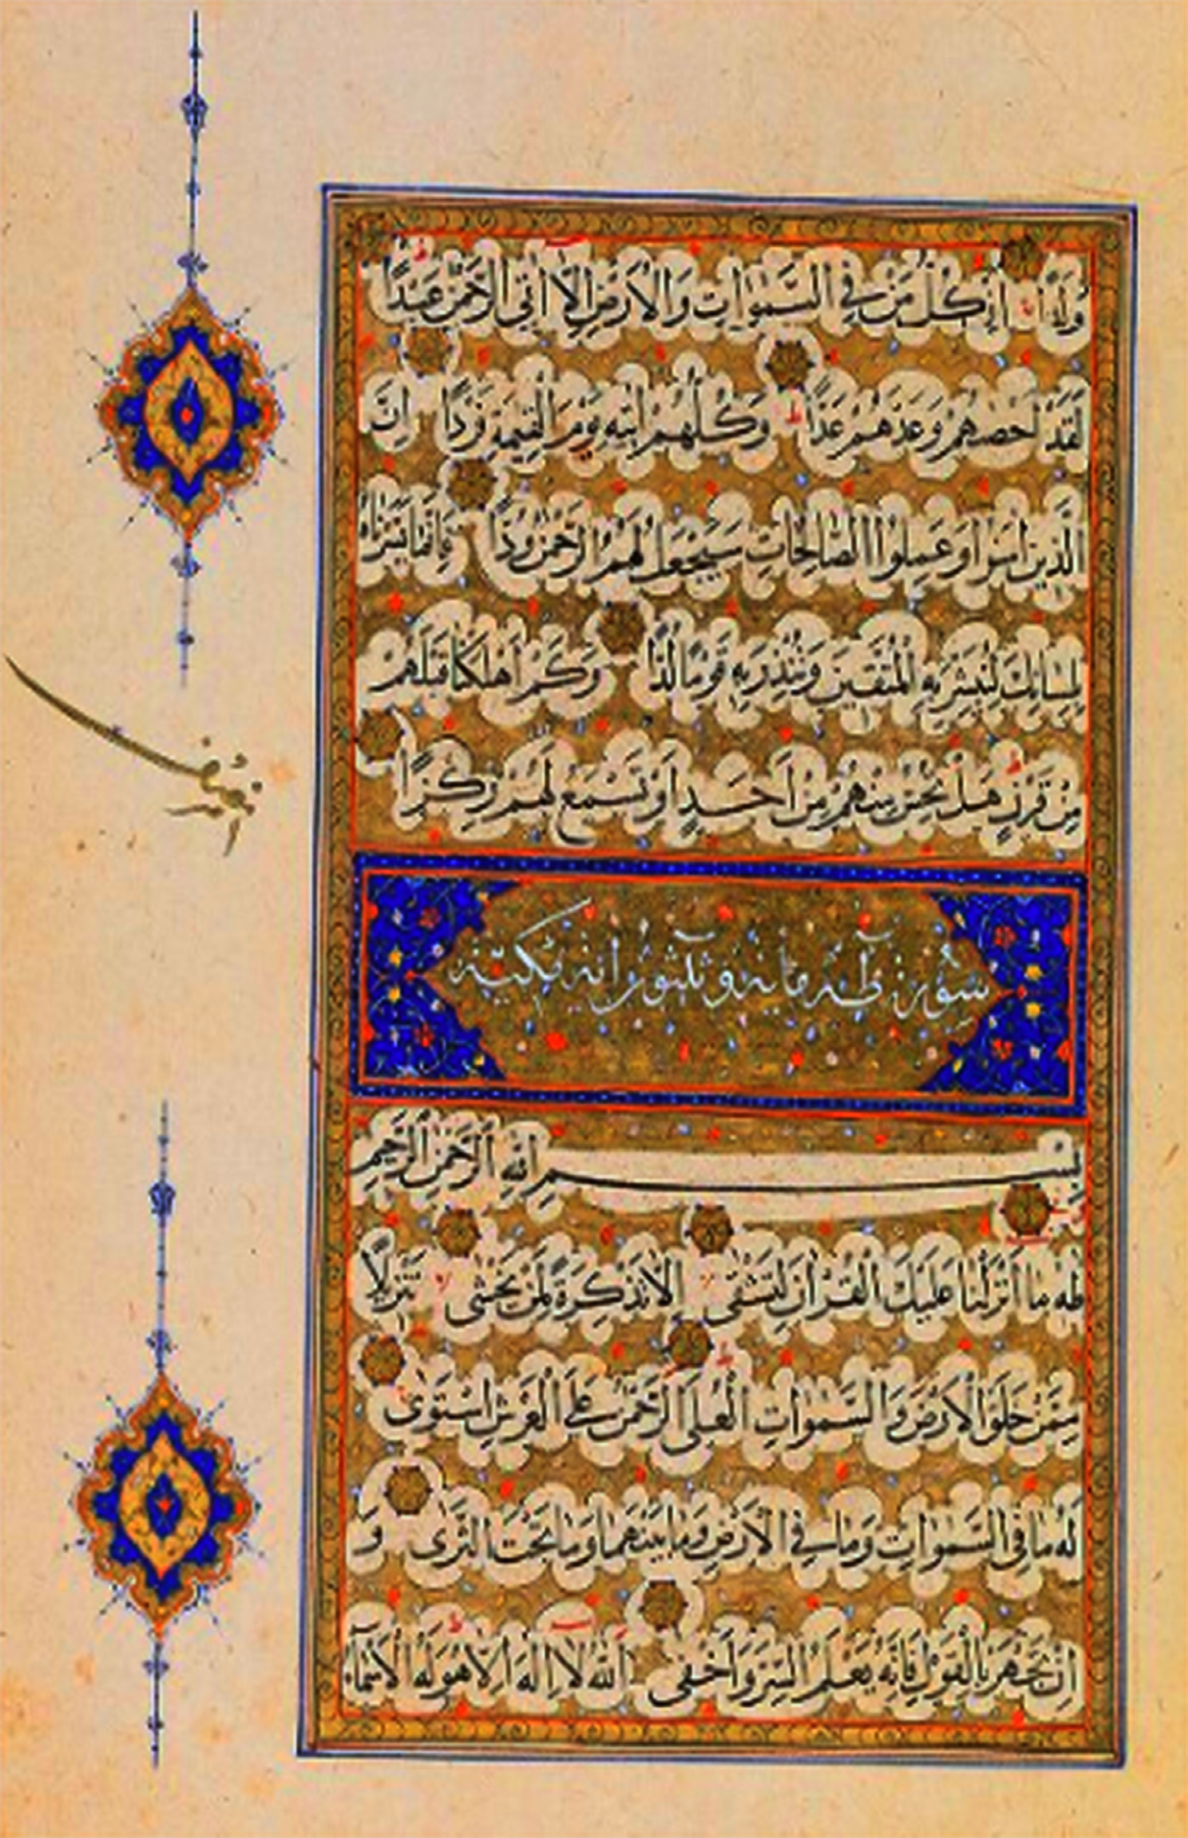 وَلَدًا اِنْ كُلُّ مَنْ فِي السَّمٰوَاتِ وَالْاَرْضِ اِلَّا اٰتِي الرَّحْمٰنِ عَبْدًا
لَقَدْ اَحْصٰيهُمْ وَعَدَّهُمْ عَدًّا وَكُلُّهُمْ اٰتِيهِ يَوْمَ الْقِيٰمَةِ فَرْدًا اِنَّ
الَّذِينَ اٰمَنُوا وَعَمِلُوا الصَّالِحَاتِ سَيَجْعَلُ لَهُمُ الرَّحْمٰنُ وُدًّا فَاِنَّمَا يَسَّرْنَاهُ
بِلِسَانِكَ لِتُبَشِّرَ بِهِ الْمُتَّقِينَ وَتُنْذِرَ بِهِ قَوْمًا لُدًّا وَكَمْ اَهْلَكْنَا قَبْلَهُمْ
مِنْ قَرْنٍ هَلْ تُحِسُّ مِنْهُمْ مِنْ اَحَدٍ اَوْ تَسْمَعُ لَهُمْ رِكْزًا
سُورَة طٰه مايه و ثلثون اية مكية
بِسْمِ اللّٰهِ الرَّحْمٰنِ الرَّحِيمِ
طه مَا اَنْزَلْنَا عَلَيْكَ الْقُرْاٰنَ لِتَشْقٰى اِلَّا تَذْكِرَةً لِمَنْ يَخْشٰى تَنْزِيلًا
مِمَّنْ خَلَقَ الْاَرْضَ وَالسَّمٰوَاتِ الْعُلٰى الرَّحْمٰنُ عَلَى الْعَرْشِ اسْتَوٰى
لَهُ مَا فِي السَّمٰوَاتِ وَمَا فِي الْاَرْضِ وَمَا بَيْنَهُمَا وَمَا تَحْتَ الثَّرٰى وَ
اِنْ تَجْهَرْ بِالْقَوْلِ فَاِنَّهُ يَعْلَمُ السِّرَّ وَاَخْفٰى اَللّٰهُ لَا اِلٰهَ اِلَّا هُوَ لَهُ الْاَسْمَاءُ